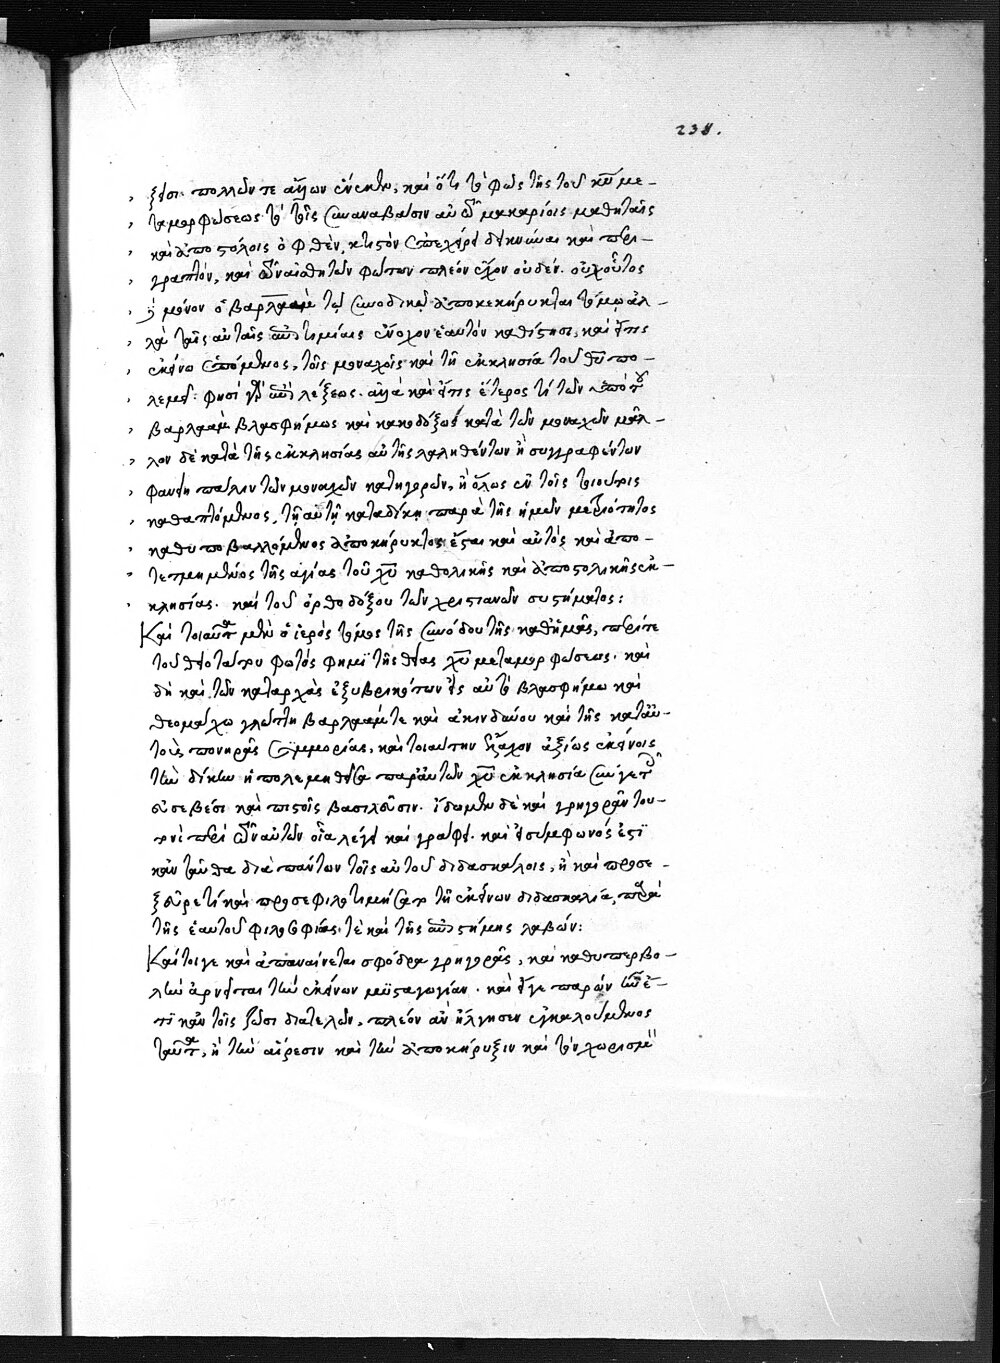 238.
ξεσι. πολλῶν τε ἄλλων ἕνεκεν, καὶ ὅτι τὸ φῶς τῆς τοῦ κυ με-
ταμορφώσεως τὸ τοῖς συναναβᾶσιν αὐτῶ μακαρίοις μαθηταῖς
καὶ ἀποστόλοις ὀφθὲν, κτιστὸν ἐπεχείρει δεικνύναι καὶ περι-
γραπτόν, καὶ τῶν αἰσθητῶν φώτων πλέον ἔχον οὐδέν. οὐχ οὗτος
δὲ μόνον ὁ βαρλαὰμ τῷ συνοδικῷ ἀποκεκήρυκται τόμω ἀλ-
λὰ ταῖς αὐταῖς ἐπιτιμίαις ἔνοχον ἑαυτὸν καθίστησι, καὶ εἴτις
ἐκείνω ἑπόμενος, τοῖς μοναχοῖς καὶ τῆ ἐκκλησία τοῦ θυ πο-
λεμεῖ: φησὶ γὰρ ἐπὶ λέξεως. ἀλλὰ καὶ εἴτις ἕτερος τὶ τῶν ὑπὸ τοῦ
βαρλαὰμ βλασφήμως καὶ κακοδόξως κατὰ τῶν μοναχῶν μᾶλ-
λον δὲ κατὰ τῆς ἐκκλησίας αὐτῆς λαληθέντων ἢ συγγραφέντων
φανείη πάλιν τῶν μοναχῶν κατηγορῶν, ἢ ὅλως ἐν τοῖς τοιούτοις
καθαπτόμενος, τῇ αὐτῇ καταδίκῃ παρὰ τῆς ἡμῶν μετριότητος
καθυποβαλλόμενος ἀποκήρυκτος ἔσται καὶ αὐτὸς καὶ ἀπο-
τετμημένος τῆς ἁγίας τοῦ χυ καθολικῆς καὶ ἀποστολικῆς ἐκ-
κλησίας. καὶ τοῦ ὀρθοδόξου τῶν χριστιανῶν συστήματος:
Καὶ τοιαῦτα μὲν ὁ ἱερὸς τόμος τῆς συνόδου τῆς καθ' ἡμᾶς, περίτε
τοῦ θειοτάτου φωτός φημὶ τῆς θείας χυ μεταμορφώσεως. καὶ
δὴ καὶ τῶν καταρχὰς ἐξυβρικότων εἰς αὐτὸ βλασφήμω καὶ
θεομάχω γλώττη βαρλαάμ τε καὶ ἀκινδύνου καὶ τῆς κατ' αὐ-
τοὺς πονηρᾶς συμμορίας, καὶ τοιαύτην εἷλον ἀξίως ἐκείνοις
τὴν δίκην ἡ πολεμηθεῖσα παρ' αὐτῶν χυ ἐκκλησία σύν γε τοῖς
εὐσεβέσι καὶ πιστοῖς βασιλεῦσιν. ἴδωμεν δὲ καὶ γρηγορᾶν του-
τονὶ περὶ τῶν αὐτῶν οἷα λέγει καὶ γράφει. καὶ εἰ σύμφωνός ἐστὶ
κἀνταῦθα διὰ πάντων τοῖς αὐτοῦ διδασκάλοις, ἢ καὶ προσε-
ξεῦρε τὶ καὶ προσεφιλοτιμήσατο τῆ ἐκείνων διδασκαλία, παρὰ
τῆς ἑαυτοῦ φιλοσοφίας τὲ καὶ τῆς ἐπιστήμης λαβών:
Καίτοιγε καὶ ἀπαναίνεται σφόδρα γρηγορᾶς, καὶ καθυπερβο-
λὴν ἀρνεῖται τὴν ἐκείνων μυσταγωγίαν. καὶ εἴγε παρῆν ἔ-
τι κἀν τοῖς ζῶσι διατελῶν, πλέον ἂν ἤλγησεν ἐγκαλούμενος
ταῦτα, ἢ τὴν αἵρεσιν καὶ τὴν ἀποκήρυξιν καὶ τὸν χωρισμὸν